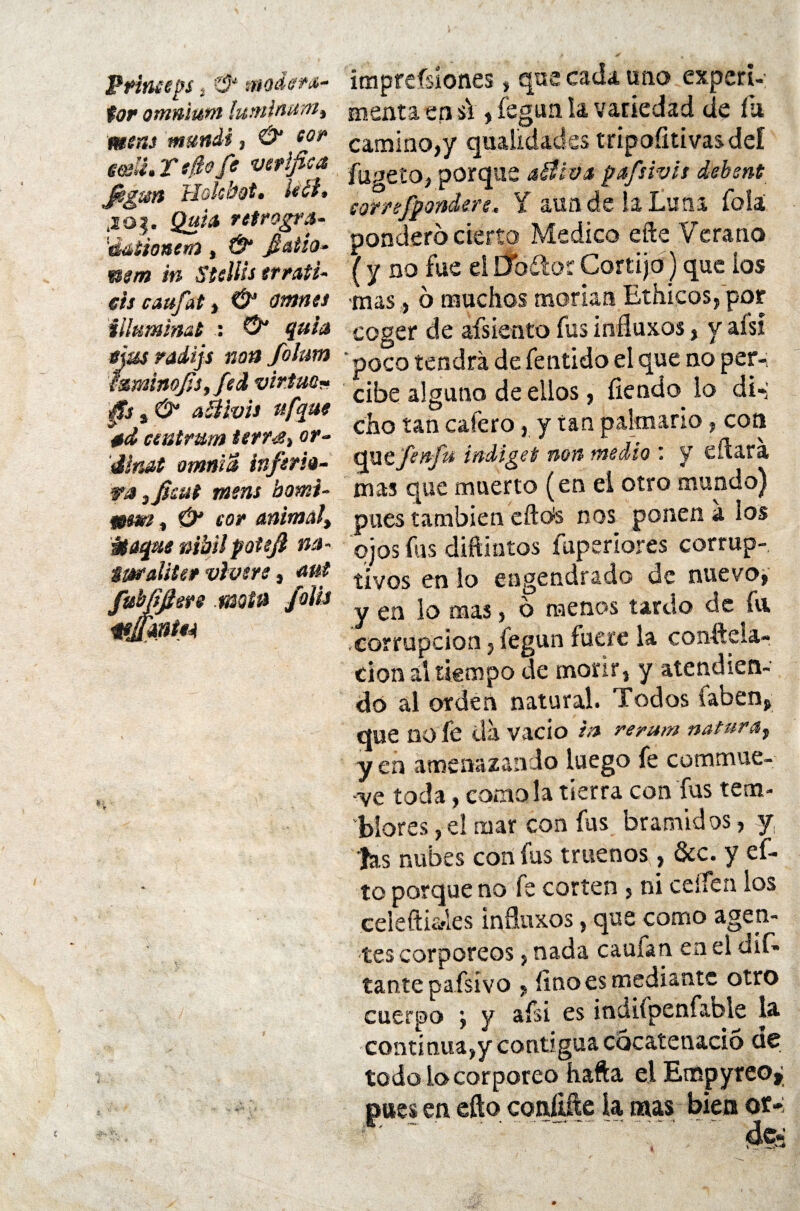 Princeps, & modera-
tor omnium luminum,
mens mundi, & cor
cœli. Y esto se verifica
segun Holcbot. lect.
203. Quia retrogra-
dationem, & statio-
nem in Stellis errati-
cis causat, & omnes
illuminat : & quia
ejus radijs non solum
luminosis, sed virtuo-
sis, & activis usque
ad centrum terræ, or-
dinat omnia inferio-
ra, sicut mens homi-
nem, & cor animal,
itaque nihil potest na-
turaliter vivere, aut
subsistere motu solis
cessante
impreſsiones, que cada uno experi-
menta en sì, ſegun la variedad de ſu
camino,y qualidades tripoſitivas del
ſugeto, porque activa paſsivis debent
correſpondere. Y aun de la Luna ſola
ponderò cierto Medico eſte Verano
(y no fue el Doctor Cortijo) que los
mas, ò muchos morian Ethicos, por
coger de aſsiento ſus influxos, y aſsi
poco tendrà de ſentido el que no per-
cibe alguno de ellos, ſiendo lo di-
cho tan caſero, y tan palmario, con
que ſenſu indiget non medio : y eſtarà
mas que muerto (en el otro mundo)
pues tambien eſtos nos ponen à los
ojos ſus diſtintos ſuperiores corrup-
tivos en lo engendrado de nuevo,
y en lo mas, ò menos tardo de ſu
corrupcion, ſegun fuere la conſtela-
cion al tiempo de morir, y atendien-
do al orden natural. Todos ſaben,
que no ſe dà vacio in rerum natura,
y en amenazando luego ſe commue-
ve toda, como la tierra con ſus tem-
blores, el mar con ſus bramidos, y
las nubes con ſus truenos, &c. y eſ-
to porque no ſe corten, ni ceſſen los
celeſtiales influxos, que como agen-
tes corporeos, nada cauſan en el diſ-
tante paſsivo, ſino es mediante otro
cuerpo ; y aſsi es indiſpenſable la
continua,y contigua cõcatenaciõ de
todo lo corporeo haſta el Empyreo,
pues en eſto conſiſte la mas bien or-
de-